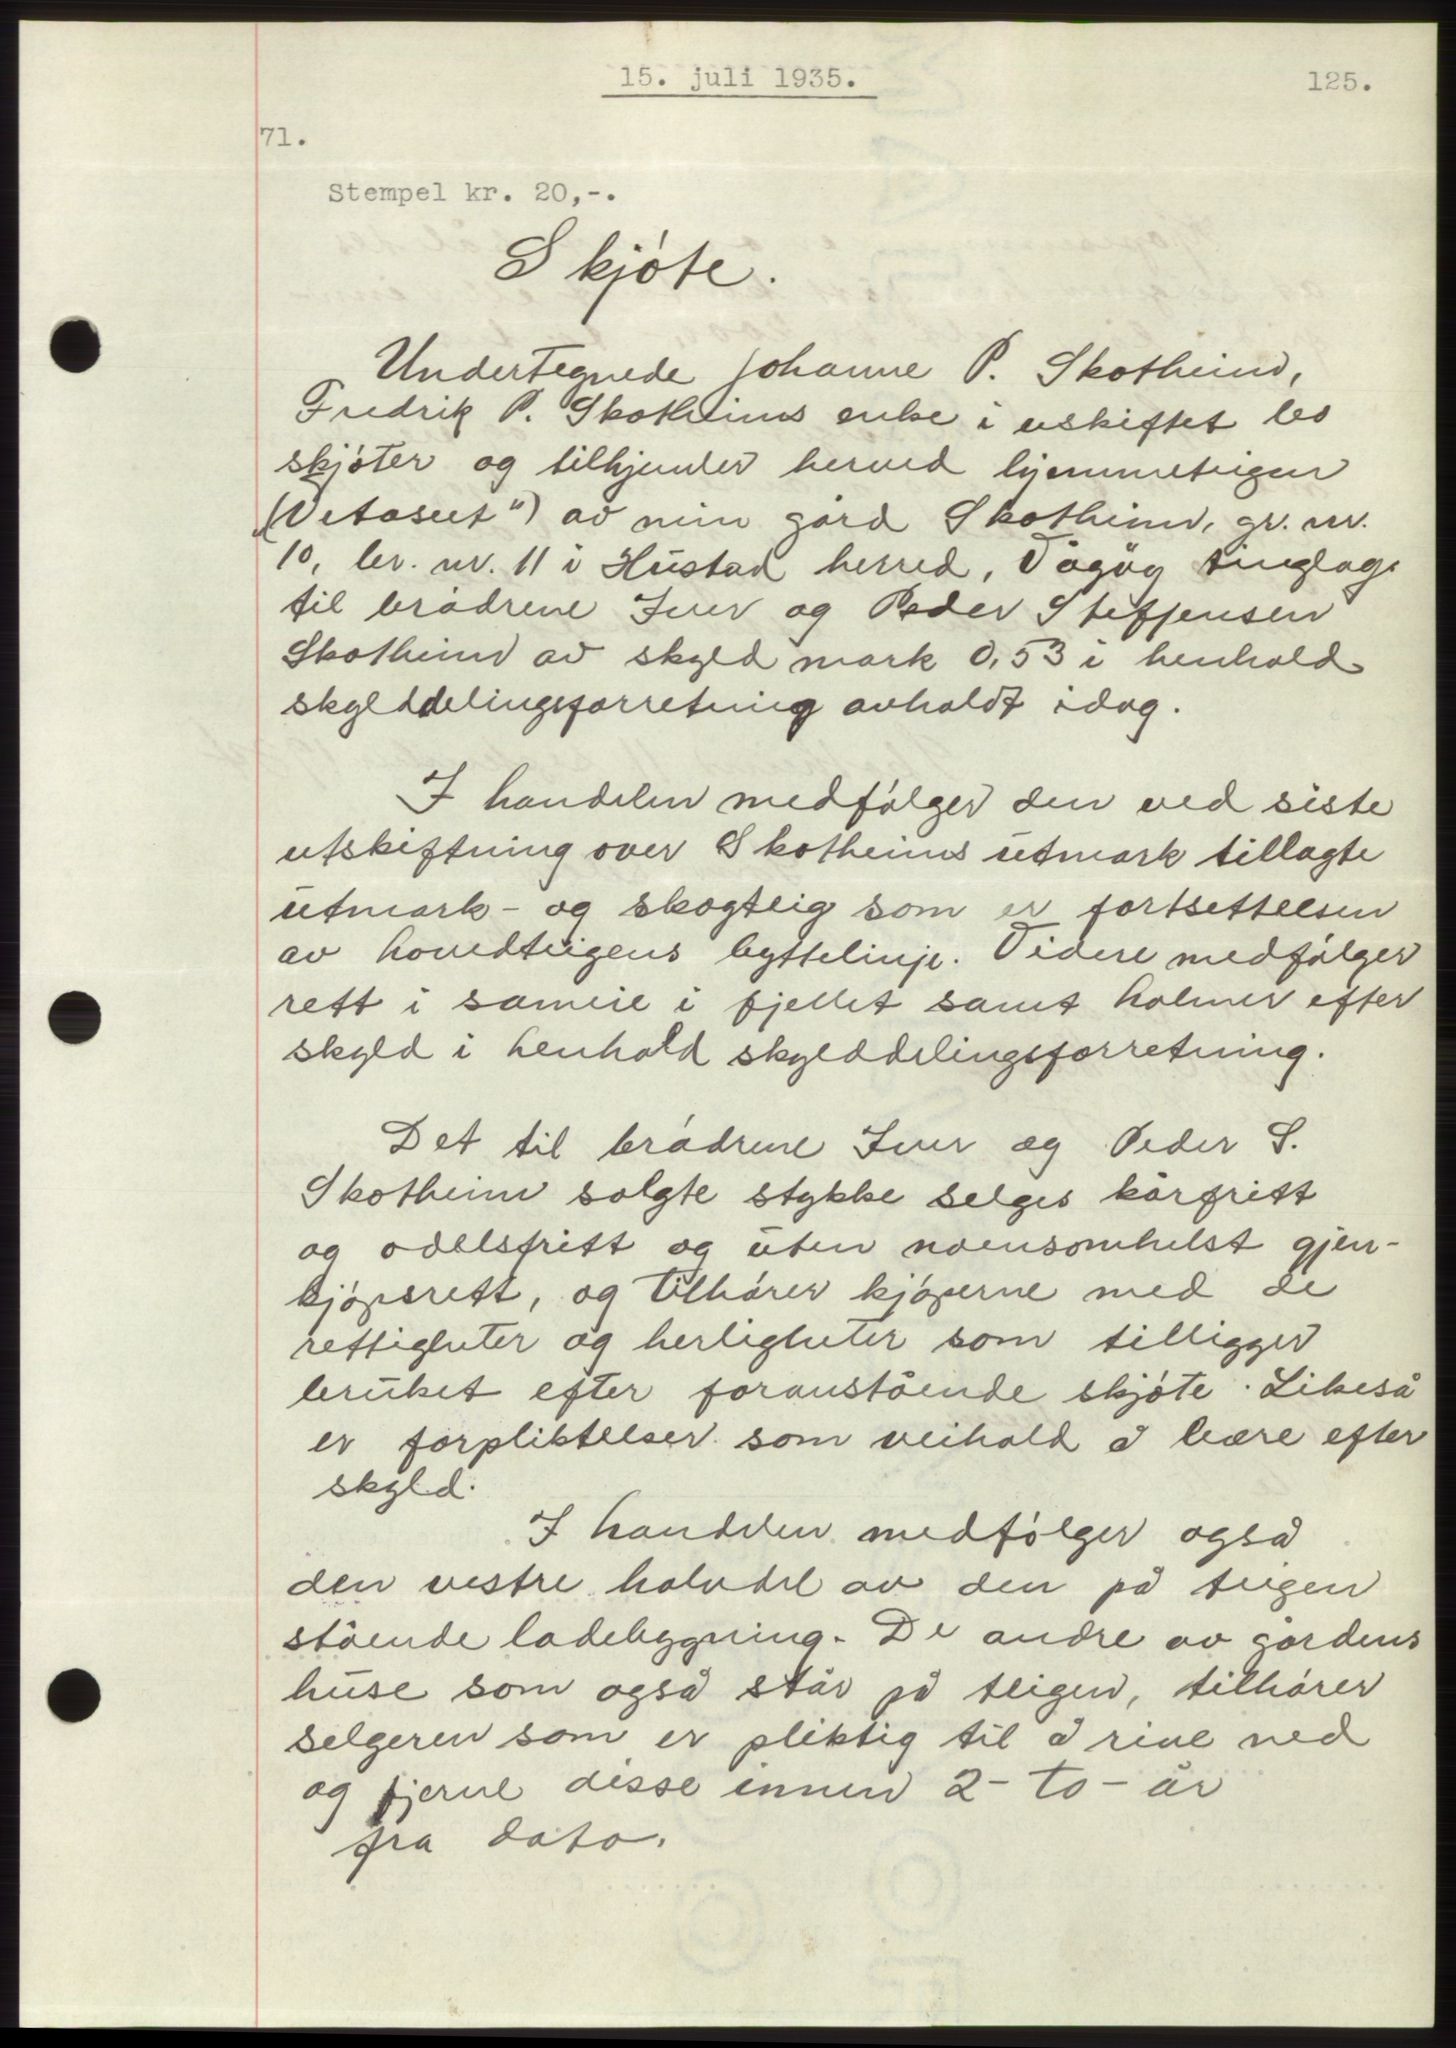 15. juli 1935.
125.
71.
Stempel kr. 20,-.
Skjóte.
Undertegnede Johanne P. Skotheim,
Fredrik P. Skotheims enke i uskiftet bo
skjóter og tilhjemler herved hjemmeteigen
("Vetaseet") av min gård Skotheim, gr. nr.
10, br. nr. 11 i Hustad herred, Vågóy tinglag
til bródrene Iver og Peder Steffensen
Skotheim av skyld mark 0,53 i henhold
skylddelingsforretning avholdt idag.
I handelen medfólger den ved siste
utskiftning over Skotheims utmark tillagte
utmark- og skogteig som er fortsettelsen
av hovedteigens byttelinje. Videre medfólger
rett i sameie i fjellet samt holmer efter
skyld i henhold skylddelingsforretning.
Det til bródrene Iver og Peder S.
Skotheim solgte stykke selges kårfritt
og odelsfritt og uten noensomhelst gjen-
kjópsrett, og tilhórer kjóperne med de
rettigheter og herligheter som tilligger
bruket efter foranstående skjóte. Likeså
er forpliktelser som veihold å bære efter
skyld.
I handelen medfólger også
den vestre halvdel av den på teigen
stående ladebygning. De andre av gårdens
huse som også står på teigen, tilhórer
selgeren som er pliktig til å rive ned
og fjerne disse innen 2- to- år
fra dato.